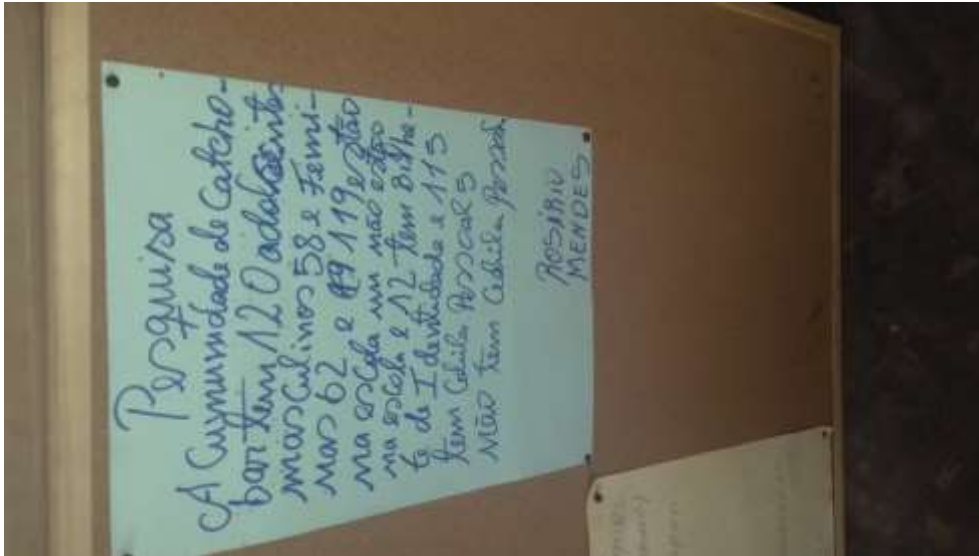 Pesquisa
A Cumunidade de Catcho-
bar tem 120 adolescentes
masculinos 58 e Femi-
nas 62 e 119 estão
na escola um não estão
na escola e 12 tem Bilhe-
te de Identidade e 115
tem Cedula Pessoal 5
não tem Cedula Pessoal
ROSÁRIO
MENDES